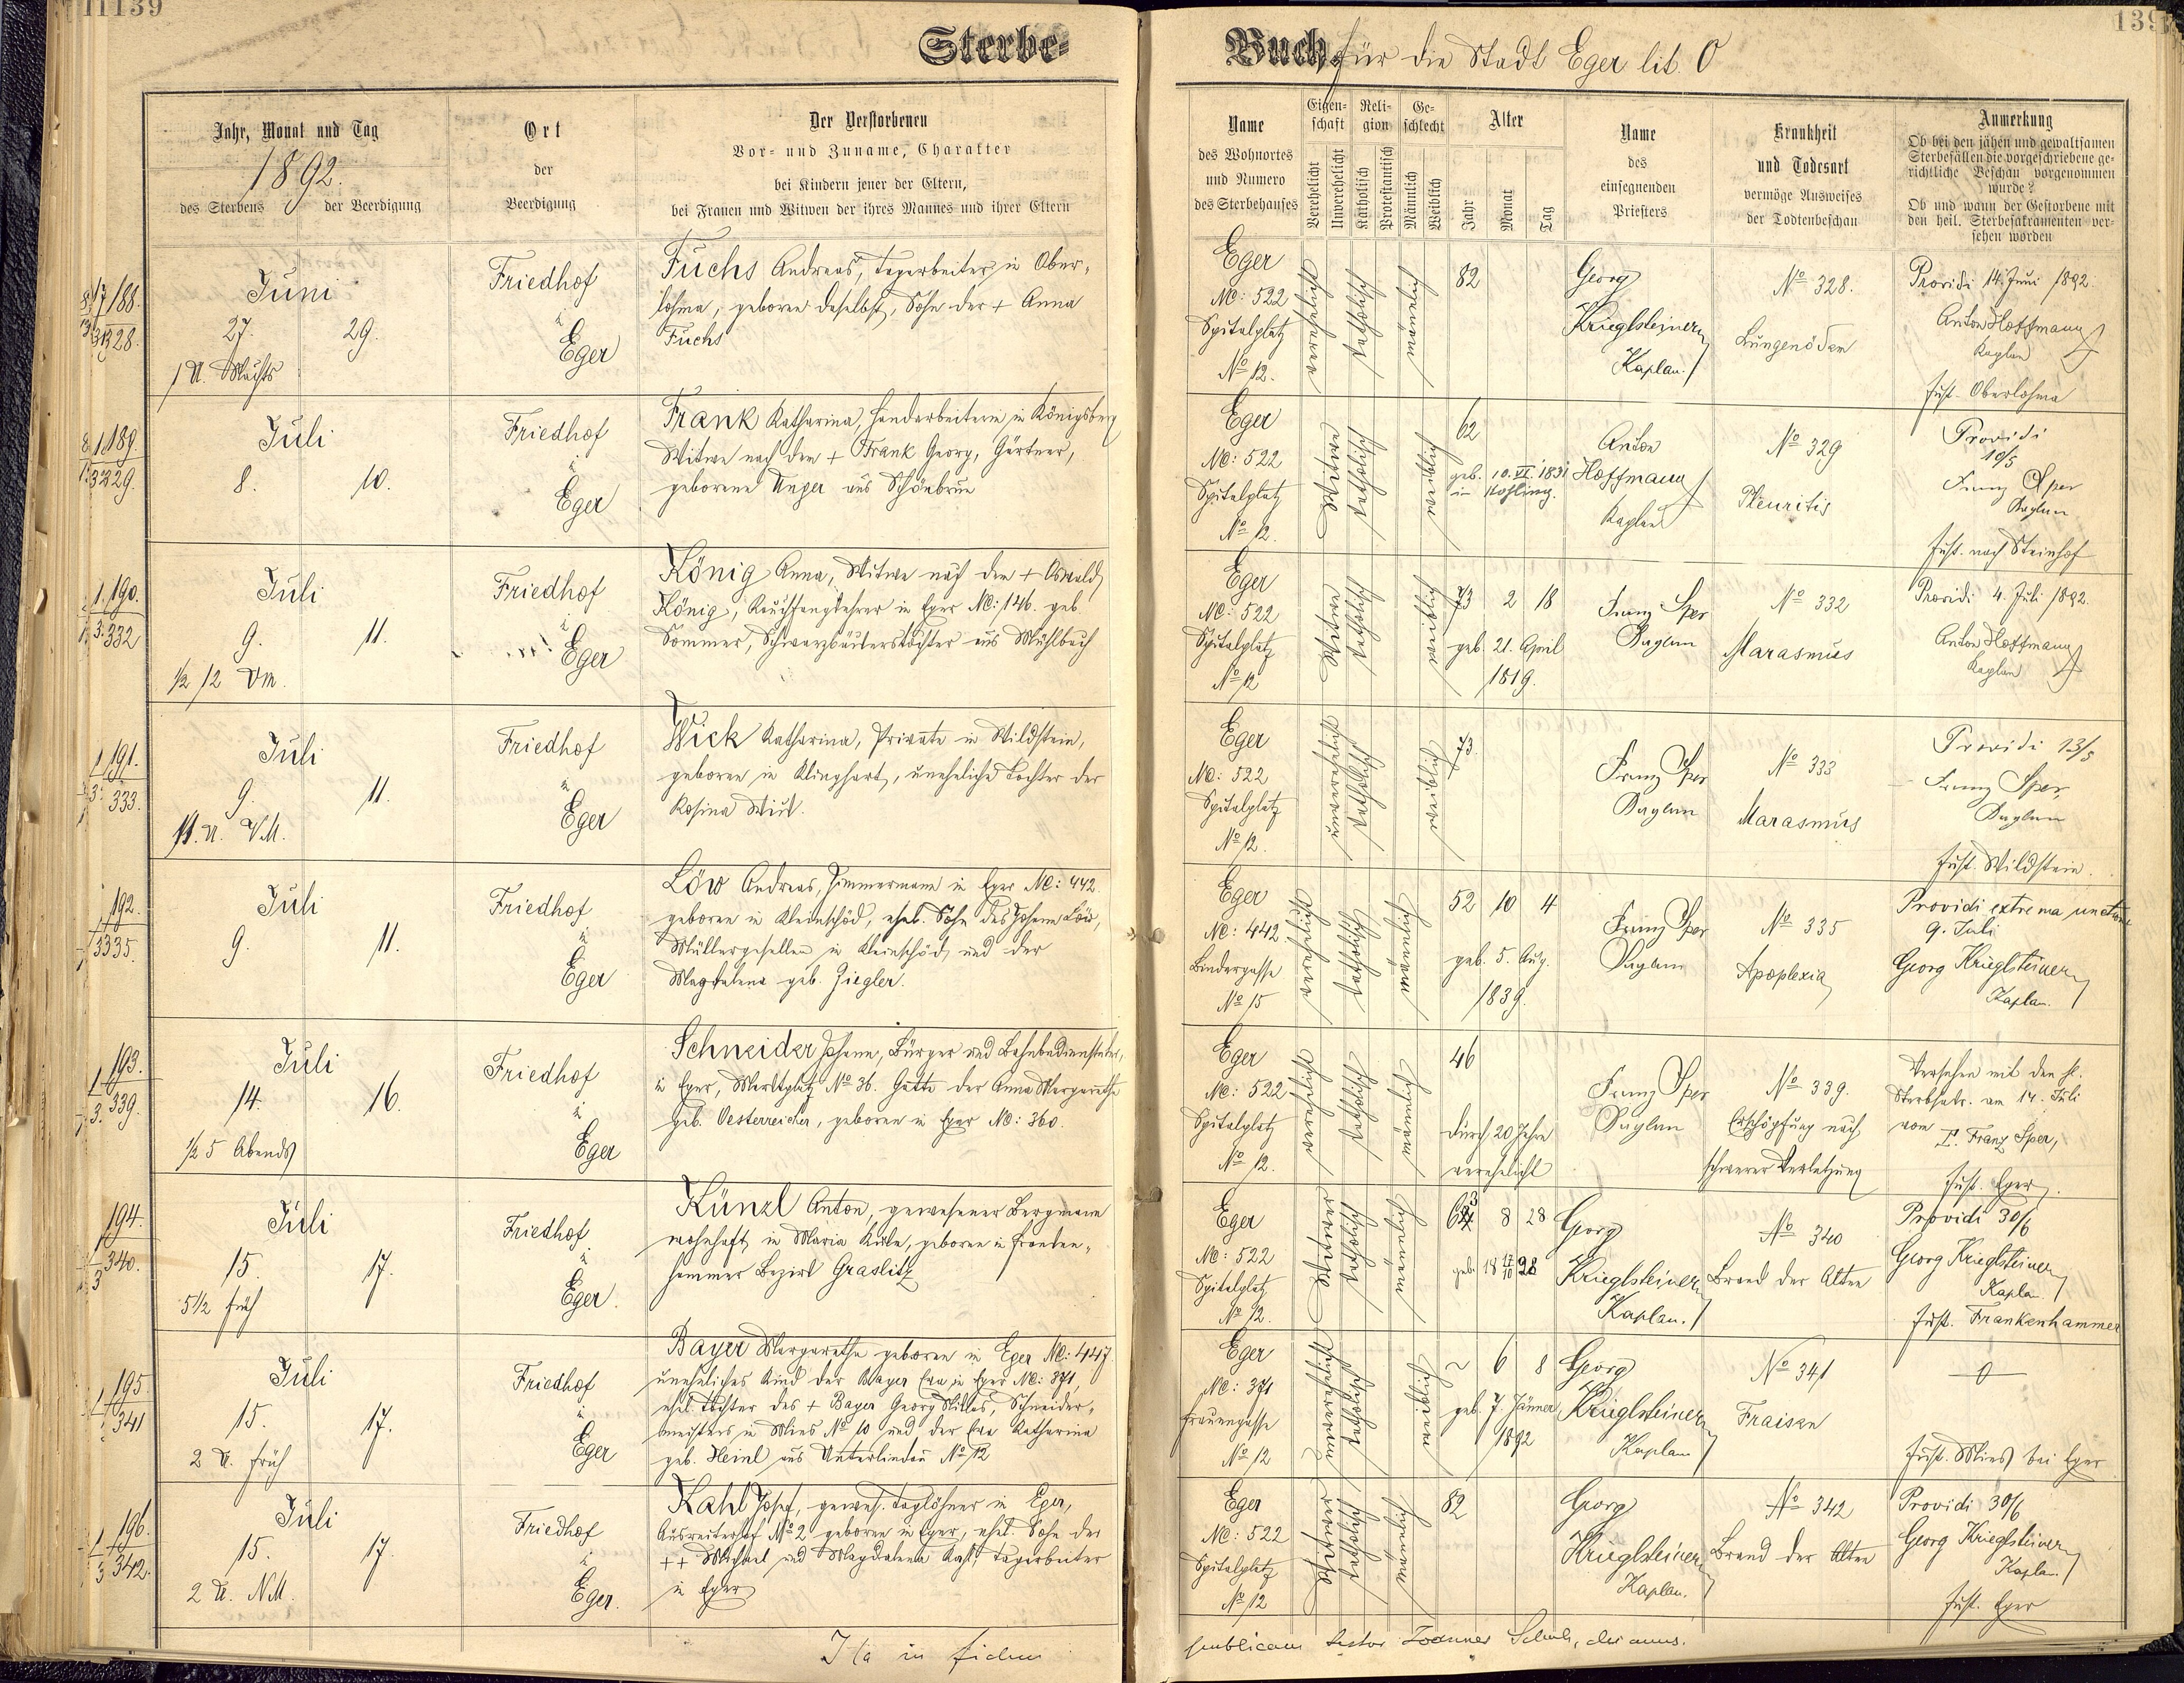 11139
139
Sterbe-
Buch für die Stadt Eger lit. O
Jahr, Monat und Tag
1892.
des Sterbens
der Beerdigung
Ort
der
Beerdigung
Der Verstorbenen
Vor- und Zuname, Charakter
bei Kindern jener der Eltern,
bei Frauen und Witwen der ihres Mannes und ihrer Eltern
Name
des Wohnortes
und Numero
des Sterbehauses
Eigen-
schaft
Verehelicht
Unverehelicht
Reli-
gion
Katholisch
Protestantisch
Ge-
schlecht
Männlich
Weiblich
Alter
Jahr
Monat
Tag
Name
des
einsegnenden
Priesters
Krankheit
und Todesart
vermöge Ausweises
der Todtenbeschau
Anmerkung
Ob bei den jähen und gewaltsamen
Sterbefällen die vorgeschriebene ge-
richtliche Beschau vorgenommen
wurde?
Ob und wann der Gestorbene mit
den heil. Sterbesakramenten ver-
sehen worden
188.
328.
Juni
27.
29.
1 U. Nachts
Friedhof
in
Eger
Fuchs Andreas, Tagarbeiter in Ober-
lohma, geboren daselbst, Sohn der + Anna
Fuchs
Eger
NC: 522
Spitalplatz
No 12.
verehelicht
katholisch
männlich
82
Georg
Krieglsteiner
Kaplan.
No 328.
Lungenödem
Providi 14. Juni 1892.
Anton Hoffmann
Kaplan
zust. Oberlohma
189.
329.
Juli
8.
10.
Friedhof
in
Eger
Frank Katharina, Handarbeiterin in Königsberg
Witwe nach dem + Frank Georg, Gärtner,
geborene Unger aus Schönbrun
Eger
NC: 522
Spitalplatz
No 12.
Witwe
katholisch
weiblich
62
geb. 10. VI. 183
in
Anton
Hoffmann
Kaplan
No 329
Pleuritis
Providi
10/5
Franz Sper
Kaplan
zust. nach Steinhof
190.
332
Juli
9.
11.
1/2 12 VM.
Friedhof
in
Eger
König Anna, Witwe nach dem + Oswald
König, in Eger NC: 146. geb.
Sommer, aus Mühlbach
Eger
NC: 522
Spitalplatz
No 12
Witwe
katholisch
weiblich
73 2 18
geb. 21. April
1819.
Franz Sper
Kaplan
No 332
Marasmus
Providi 4. Juli 1892.
Anton Hoffmann
Kaplan
191.
333.
Juli
9.
11.
11. U. V.M.
Friedhof
in
Eger
Wick Katharina, Private in Wildstein,
geboren in Klinghart, uneheliche Tochter der
Rosina Wick.
Eger
NC: 522
Spitalplatz
No 12.
unverehelicht
katholisch
weiblich
73.
Franz Sper
Kaplan
No 333
Marasmus
Providi 13/5
Franz Sper,
Kaplan
zust. Wildstein.
192.
335.
Juli
9.
11.
Friedhof
in
Eger
Löw Andreas, Zimmermann in Eger NC: 442.
geboren in Kleinschöd, ehel. Sohn des Johann Löw,
Müllergesellen in Kleinschöd, und der
Magdalena geb. Ziegler.
Eger
NC: 442
Bindergasse
No 15
verehelicht
katholisch
männlich
52 10 4
geb. 5. Aug.
1839.
Franz Sper
Kaplan
No 335
Apoplexia
Providi extrema unctione
9. Juli
Georg Krieglsteiner
Kaplan.
193.
339.
Juli
14.
16.
1/2 5 Abends
Friedhof
in
Eger
Schneider Johann, Bürger und Bahnbediensteter,
in Eger, Marktplatz No 36. Gatte der Anna Margaretha
geb. Oesterreicher, geboren in Eger NC: 360.
Eger
NC: 522
Spitalplatz
No 12.
verehelicht
katholisch
männlich
46
durch 20 Jahre
verehelicht
Franz Sper
Kaplan
No 339.
Erschöpfung nach
schwerer Verletzung
Versehen mit den hl.
Sterbsakr. am 14. Juli
von P. Franz Sper,
zust. Eger.
194.
340.
Juli
15.
17.
5 1/2 früh
Friedhof
in
Eger.
Künzl Anton, gewesener Bergmann
wohnhaft in Maria Kulm, geboren in Franken-
hammer Bezirk Graslitz
Eger
NC: 522
Spitalplatz
No 12.
Witwer
katholisch
männlich
63 8 28
geb. 18 17/10 28
Georg
Krieglsteiner
Kaplan.
No 340
Brand der Alten
Providi 30/6
Georg Krieglsteiner
Kaplan.
zust. Frankenhammer
195
341
Juli
15.
17.
2 U. früh
Friedhof
in
Eger
Bayer Margaretha geboren in Eger NC: 447.
uneheliches Kind der Bayer Eva in Eger NC: 371,
ehel. Tochter des + Bayer Georg Schneider-
meisters in Mies No 10 und der Eva Katharina
geb. Heinl aus Unterlindau No 12
Eger
NC: 371
Frauengasse
No 12
unverehelicht
katholisch
weiblich
~ 6 8
geb. 7. Jänner
1892
Georg
Krieglsteiner
Kaplan
No 341
Fraisen
0
zust. Mies bei Eger
196.
342.
Juli
15.
17.
2 U. N.M.
Friedhof
in
Eger.
Kahl Josef, gewes. Taglöhner in Eger,
No 2 geboren in Eger, ehel. Sohn der
++ Michael und Magdalena Kahl, Tagarbeiter
in Eger
Eger
NC: 522
Spitalplatz
No 12
Witwer
katholisch
männlich
82
Georg
Krieglsteiner
Kaplan.
No 342
Brand der Alten
Providi 30/6
Georg Krieglsteiner
Kaplan.
zust. Eger
Ita in fidem
publicam testor Joannes